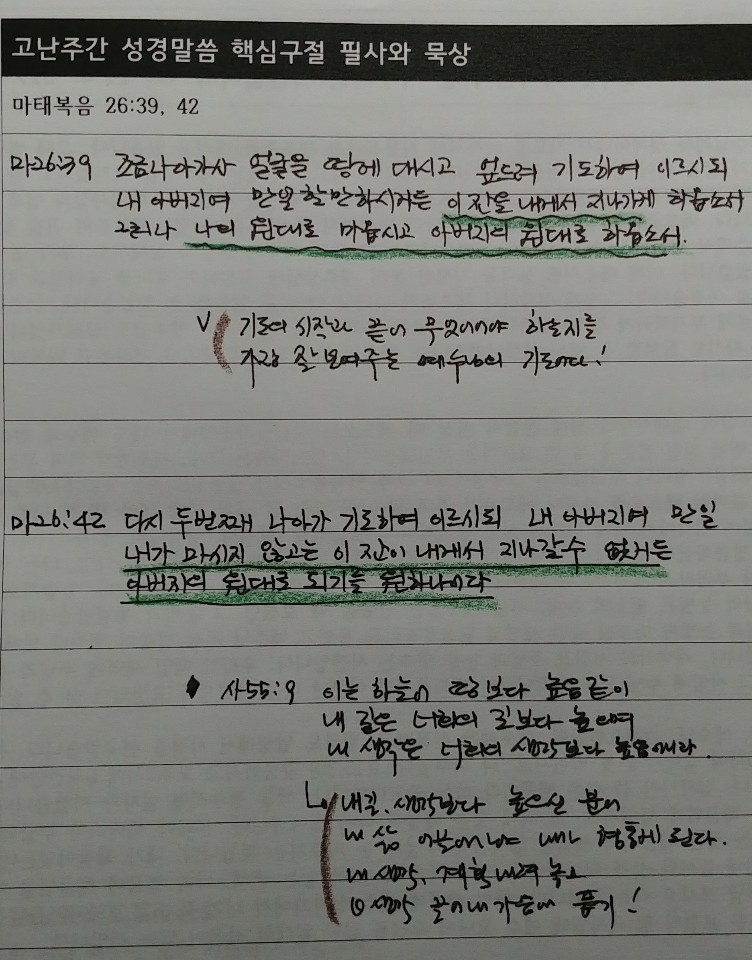 고난주간 성경말씀 핵심구절 필사와 묵상
마태복음 26:39, 42
마26:39 조금 나아가사 얼굴을 땅에 대시고 엎드려 기도하여 이르시되
내 아버지여 만일 할 만하시거든 이 잔을 내게서 지나가게 하옵소서
그러나 나의 원대로 마옵시고 아버지의 원대로 하옵소서.
V 기도의 시작과 끝이 무엇이어야 하는지를
가장 잘 보여주는 예수님의 기도이다!
마26:42 다시 두번째 나아가 기도하여 이르시되 내 아버지여 만일
내가 마시지 않고는 이 잔이 내게서 지나갈 수 없거든
아버지의 원대로 되기를 원하나이다
◆ 사55:9 이는 하늘이 땅보다 높음같이
내 길은 너희의 길보다 높으며
내 생각은 너희의 생각보다 높음이니라.
내길, 생각보다 높으신 분이
내 삶 이끌어야 내가 형통케 된다.
내 생각, 계획 내려 놓고
생각 끝이 내 가슴에 품기!